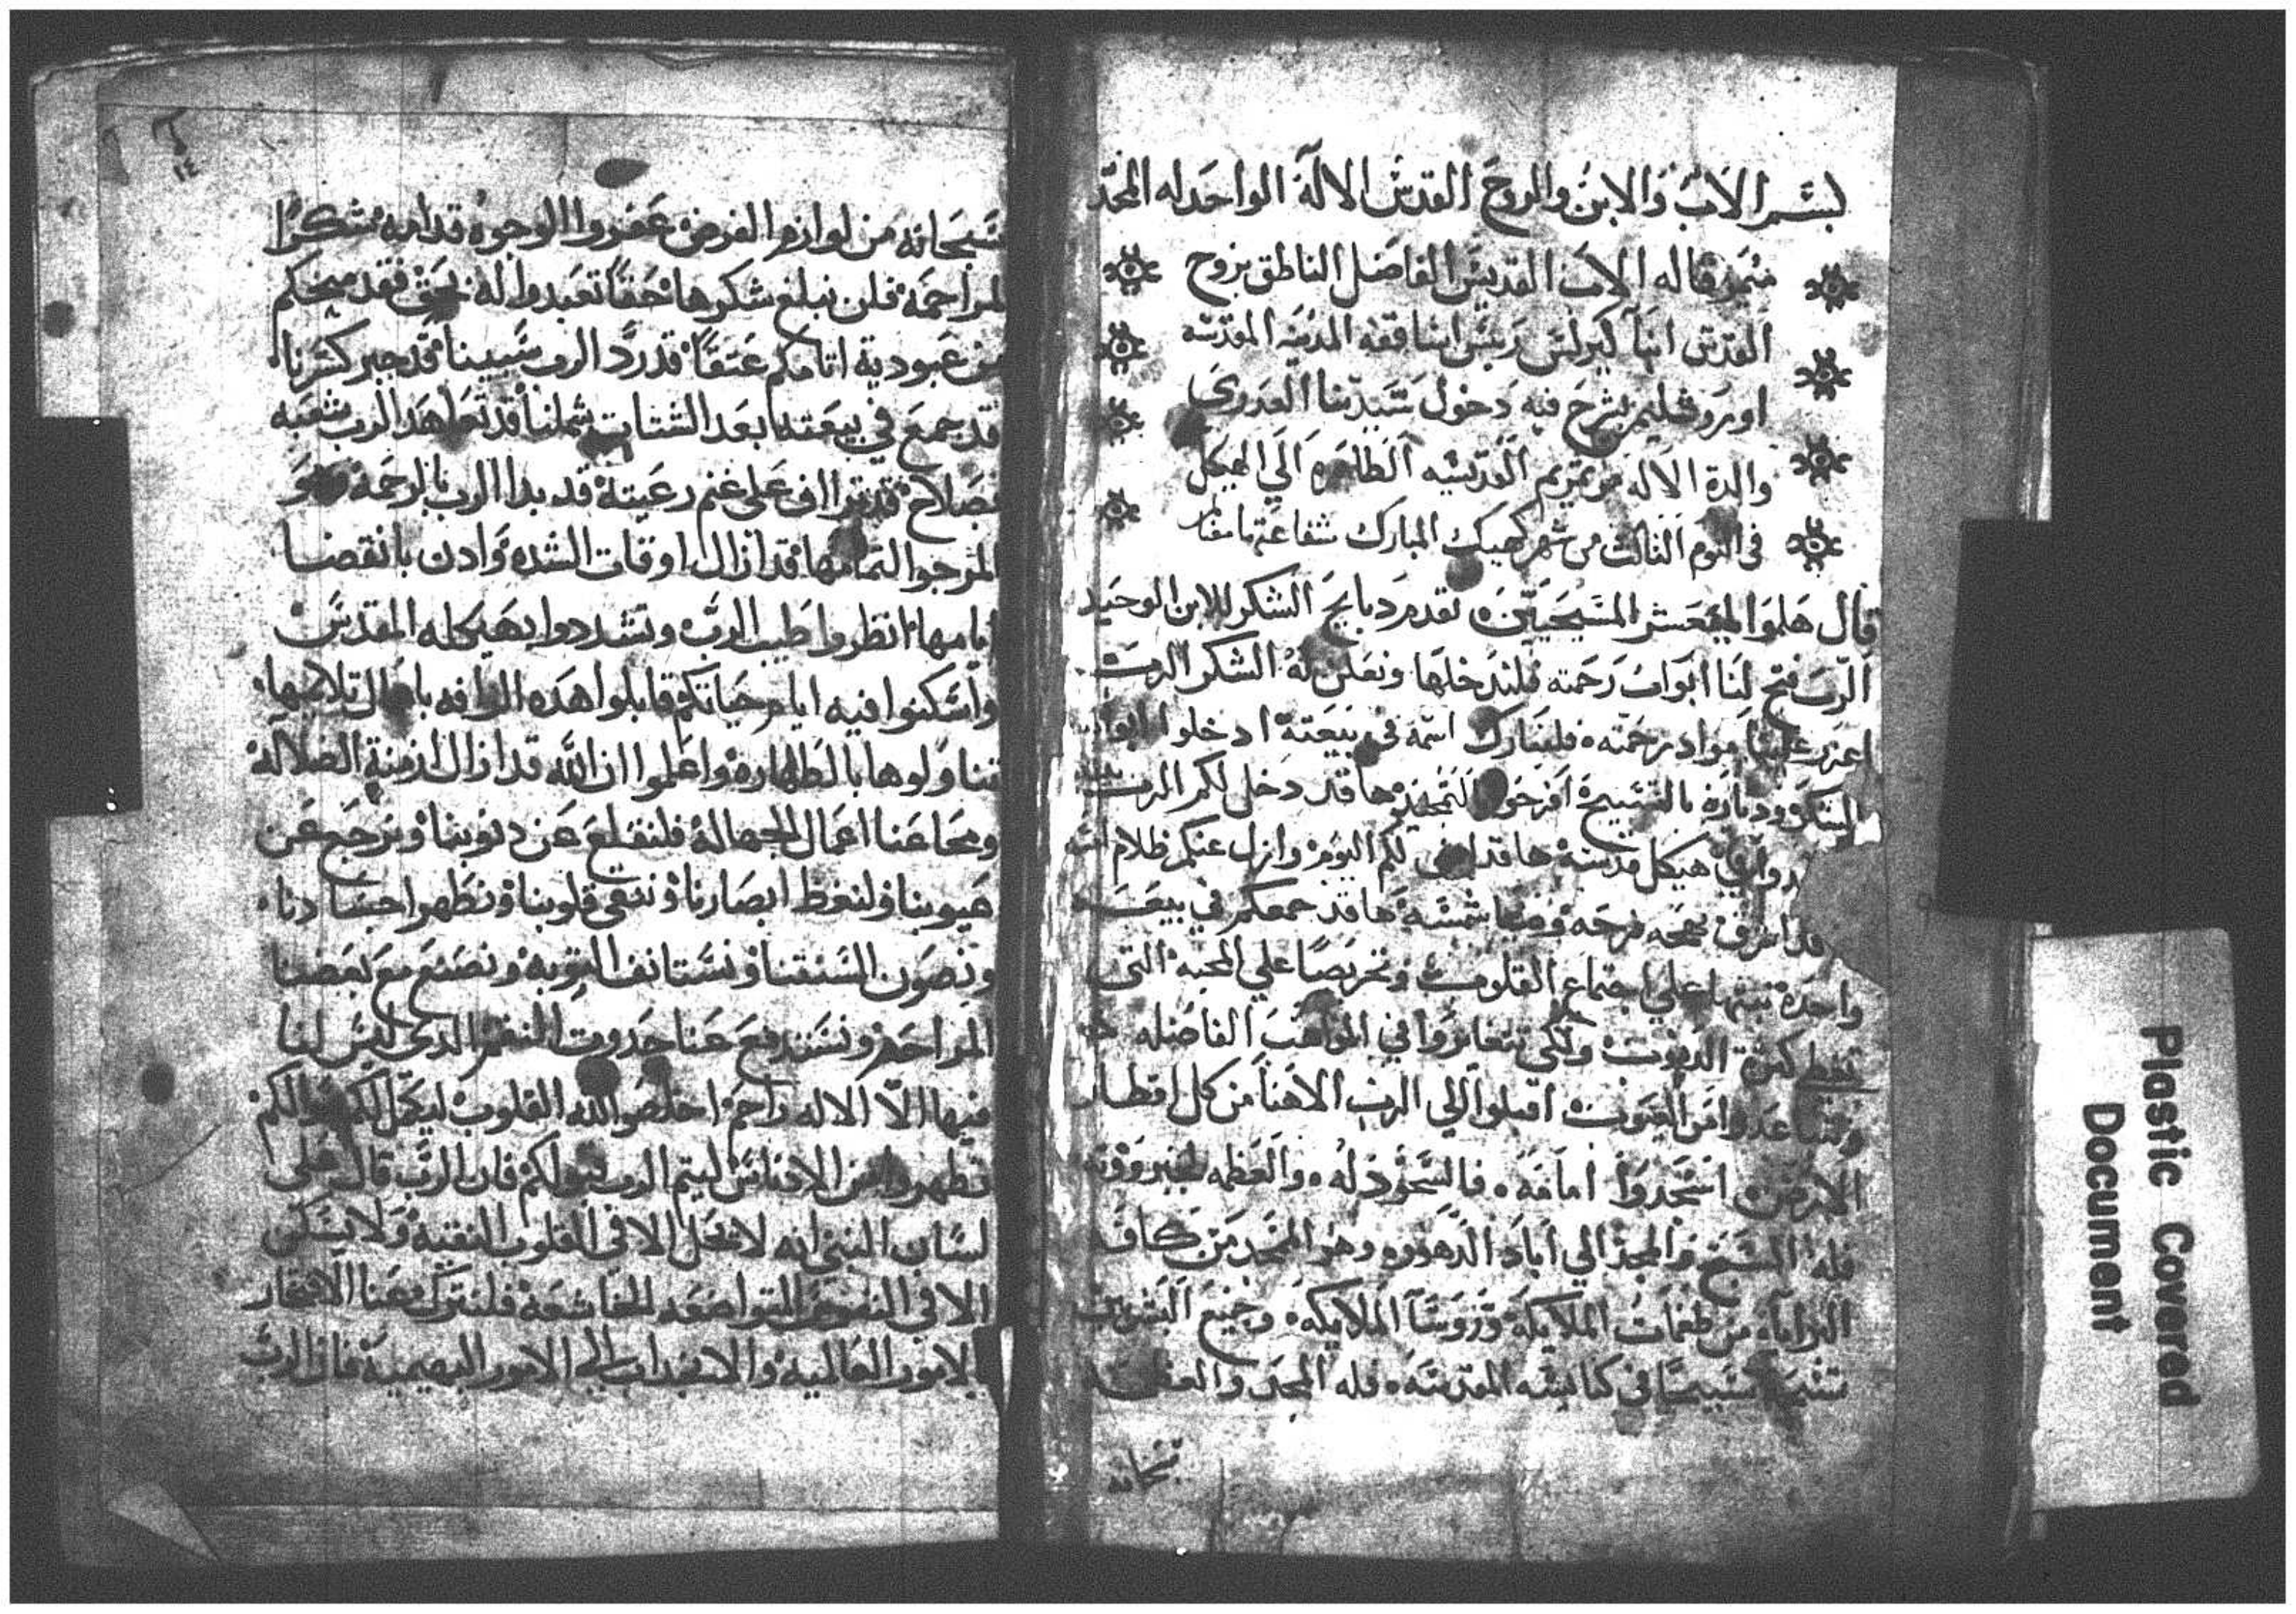 بسم الاب والابن والروح القدس الالاه الواحد له المجد
ميمر قاله الاب القديس الفاضل الناطق بروح
القدس انبا كيرلس ريس اساقفه المدينه المقدسه
اورشليم يشرح فيه دخول سيدتنا العدرى
والدة الاله مرتمريم القديسه الطاهره الي الهيكل
في اليوم الثالث من شهر كيهك المبارك شفاعتها
قال هلموا المسيحيين نقدم دبايح الشكر للابن الوحيد
الرب فتح لنا ابواب رحمته فلندخلها ونعلن له الشكر الرب
علينا مواد رحمته فلنبارك اسمه في بيعته ادخلوا ابوابه
ودياره بالتسبيح افرحوا ها قد دخل لكم الرب
هيكل قدسه ها قد لكم اليوم وازل عنكم ظلام
قد اشرق فرحه شمسه ها قد جمعكم في بيعه
واحده علي اجتماع القلوب علي المحبه التي
تغطي كثرة الدنوب في المواهب الفاضله
اقبلوا الي الرب الاهنا من كل اقطار
الارض اسجدوا امامه فالسجود له والعظمه لجبروته
فله التسبيح والمجد الي اباد الدهور وهو الممجد من كافة
البرايا من طغمات الملايكه وروسا الملايكه وجميع البشريين
تسبيحا في كنايسه المقدسه فله المجد والعظمه
سبحانه
١٤
سبحانه من لوازم الفرض عفروا الوجوه قدامه شكرا
لمراحمه فلن نبلغ شكرها حقا تعبدوا له بحق فقد منحكم
من عبودية اتامكم عتقا قد رد الرب سبينا قد جبر كسرنا
قد جمع في بيعته بعد الشتات شملنا قد تعاهد الرب شعبه
بصلاح قد تراف على غنم رعيته قد بدا الرب بالرحمة وهو
المرجوا لتمامها قد ازال اوقات الشده وادن بانقضا
ايامها انظروا طيب الرب وتشددوا بهيكله المقدس
واسكنوا فيه ايام حياتكم قابلوا هده الرافه باعمال تلايمها
تناولوها بالطهاره واعلموا ان الله قد ازال ازمنة الضلاله
ومحا عنا اعمال الجهاله فلنقلع عن دنوبنا ونرجع عن
عيوبنا ولنغظ ابصارنا وننقي قلوبنا ونطهر اجسادنا
ونصون السنتنا ونستانف التوبه ونصنع مع بعضنا
المراحم ونستدفع عنا حدوت النقم الدى ليس لنا
فيها الا الاله راحم اخلصوا لله القلوب ليكمل لكم
تطهروا من الادناس ليتم الرب لكم فان الرب قال على
لسان النبي انه لا يحل الا في القلوب النقية ولا يسكن
الا في النفوس المتواضعه الخاشعة فلنترك عنا الافتخار
بالامور العالميه والانجداب الي الامور البهيميه فان الرب
Plastic Covered
Document